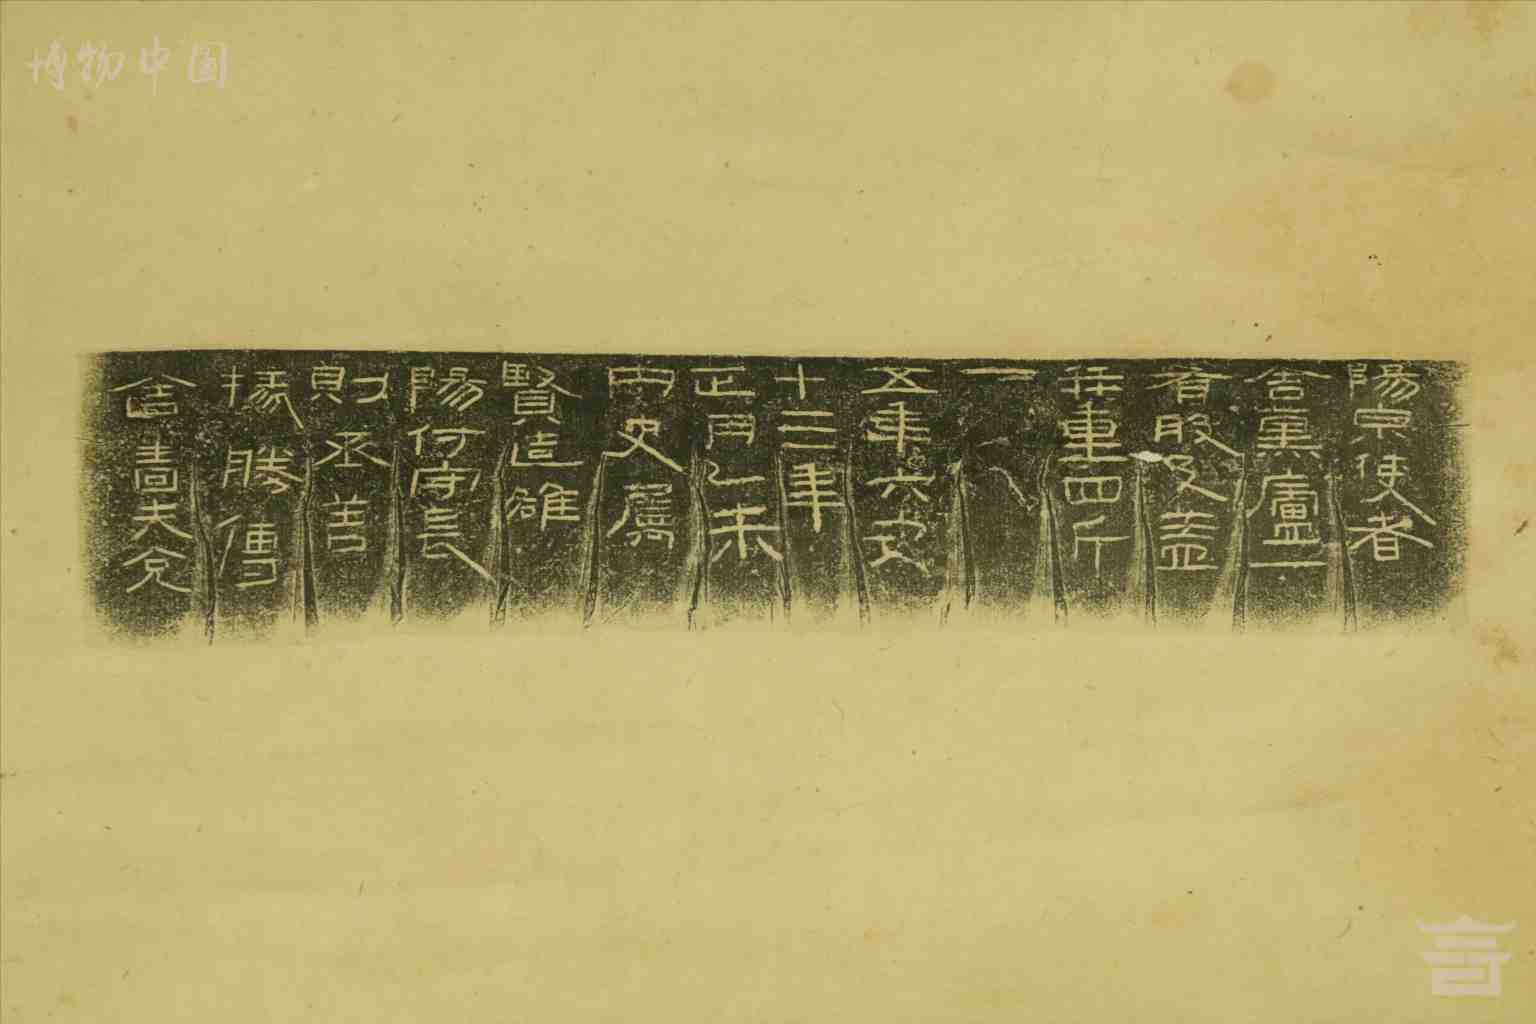 陽泉使者
舍薰廬一
有般及蓋
并重四斤
一
五年六安
十三年
正月乙未
内史屬
賢造雒
陽付守長
則丞善
掾勝傳
舍嗇夫兌
博物中国